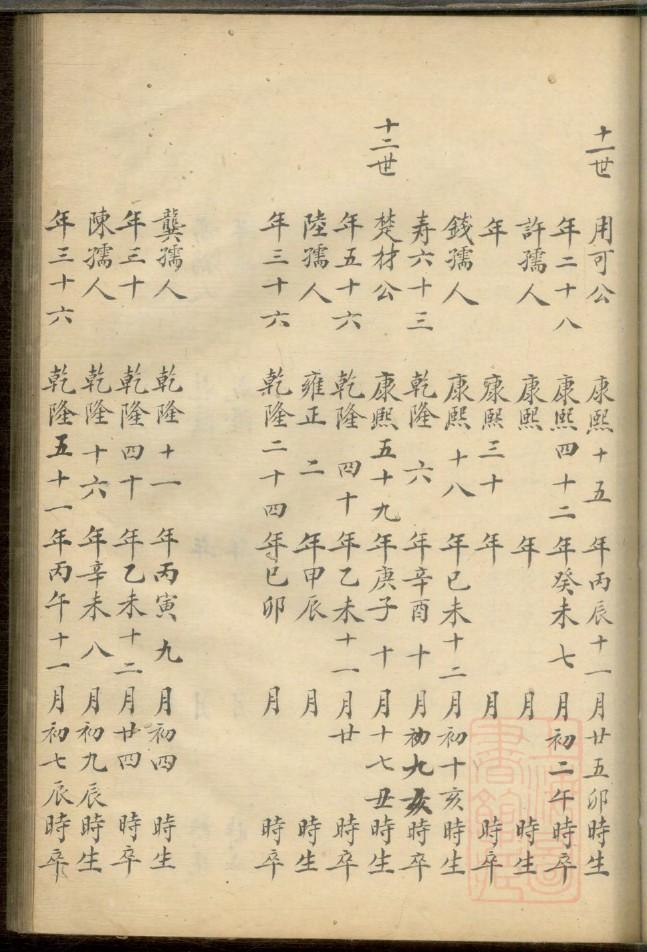 十一世 用可公 康熙十五年丙辰十一月廿五卯時生
年二十八 康熙四十二年癸未七月初二午時卒
許孺人 康熙 年 月 時生
年 康熙三十年 月 時卒
錢孺人 康熙十八年已未十二月初十亥時生
寿六十三 乾隆六年辛酉十月初九亥時卒
十二世 楚材公 康熙五十九年庚子十月十七丑時生
年五十六 乾隆四十年乙未十一月廿 時卒
陸孺人 雍正二年甲辰 月 時生
年三十六 乾隆二十四年已卯 月 時卒
龔孺人 乾隆十一年丙寅九月初四 時生
年三十 乾隆四十年乙未十二月廿四 時卒
陳孺人 乾隆十六年辛未八月初九辰時生
年三十六 乾隆五十一年丙午十一月初七辰時卒